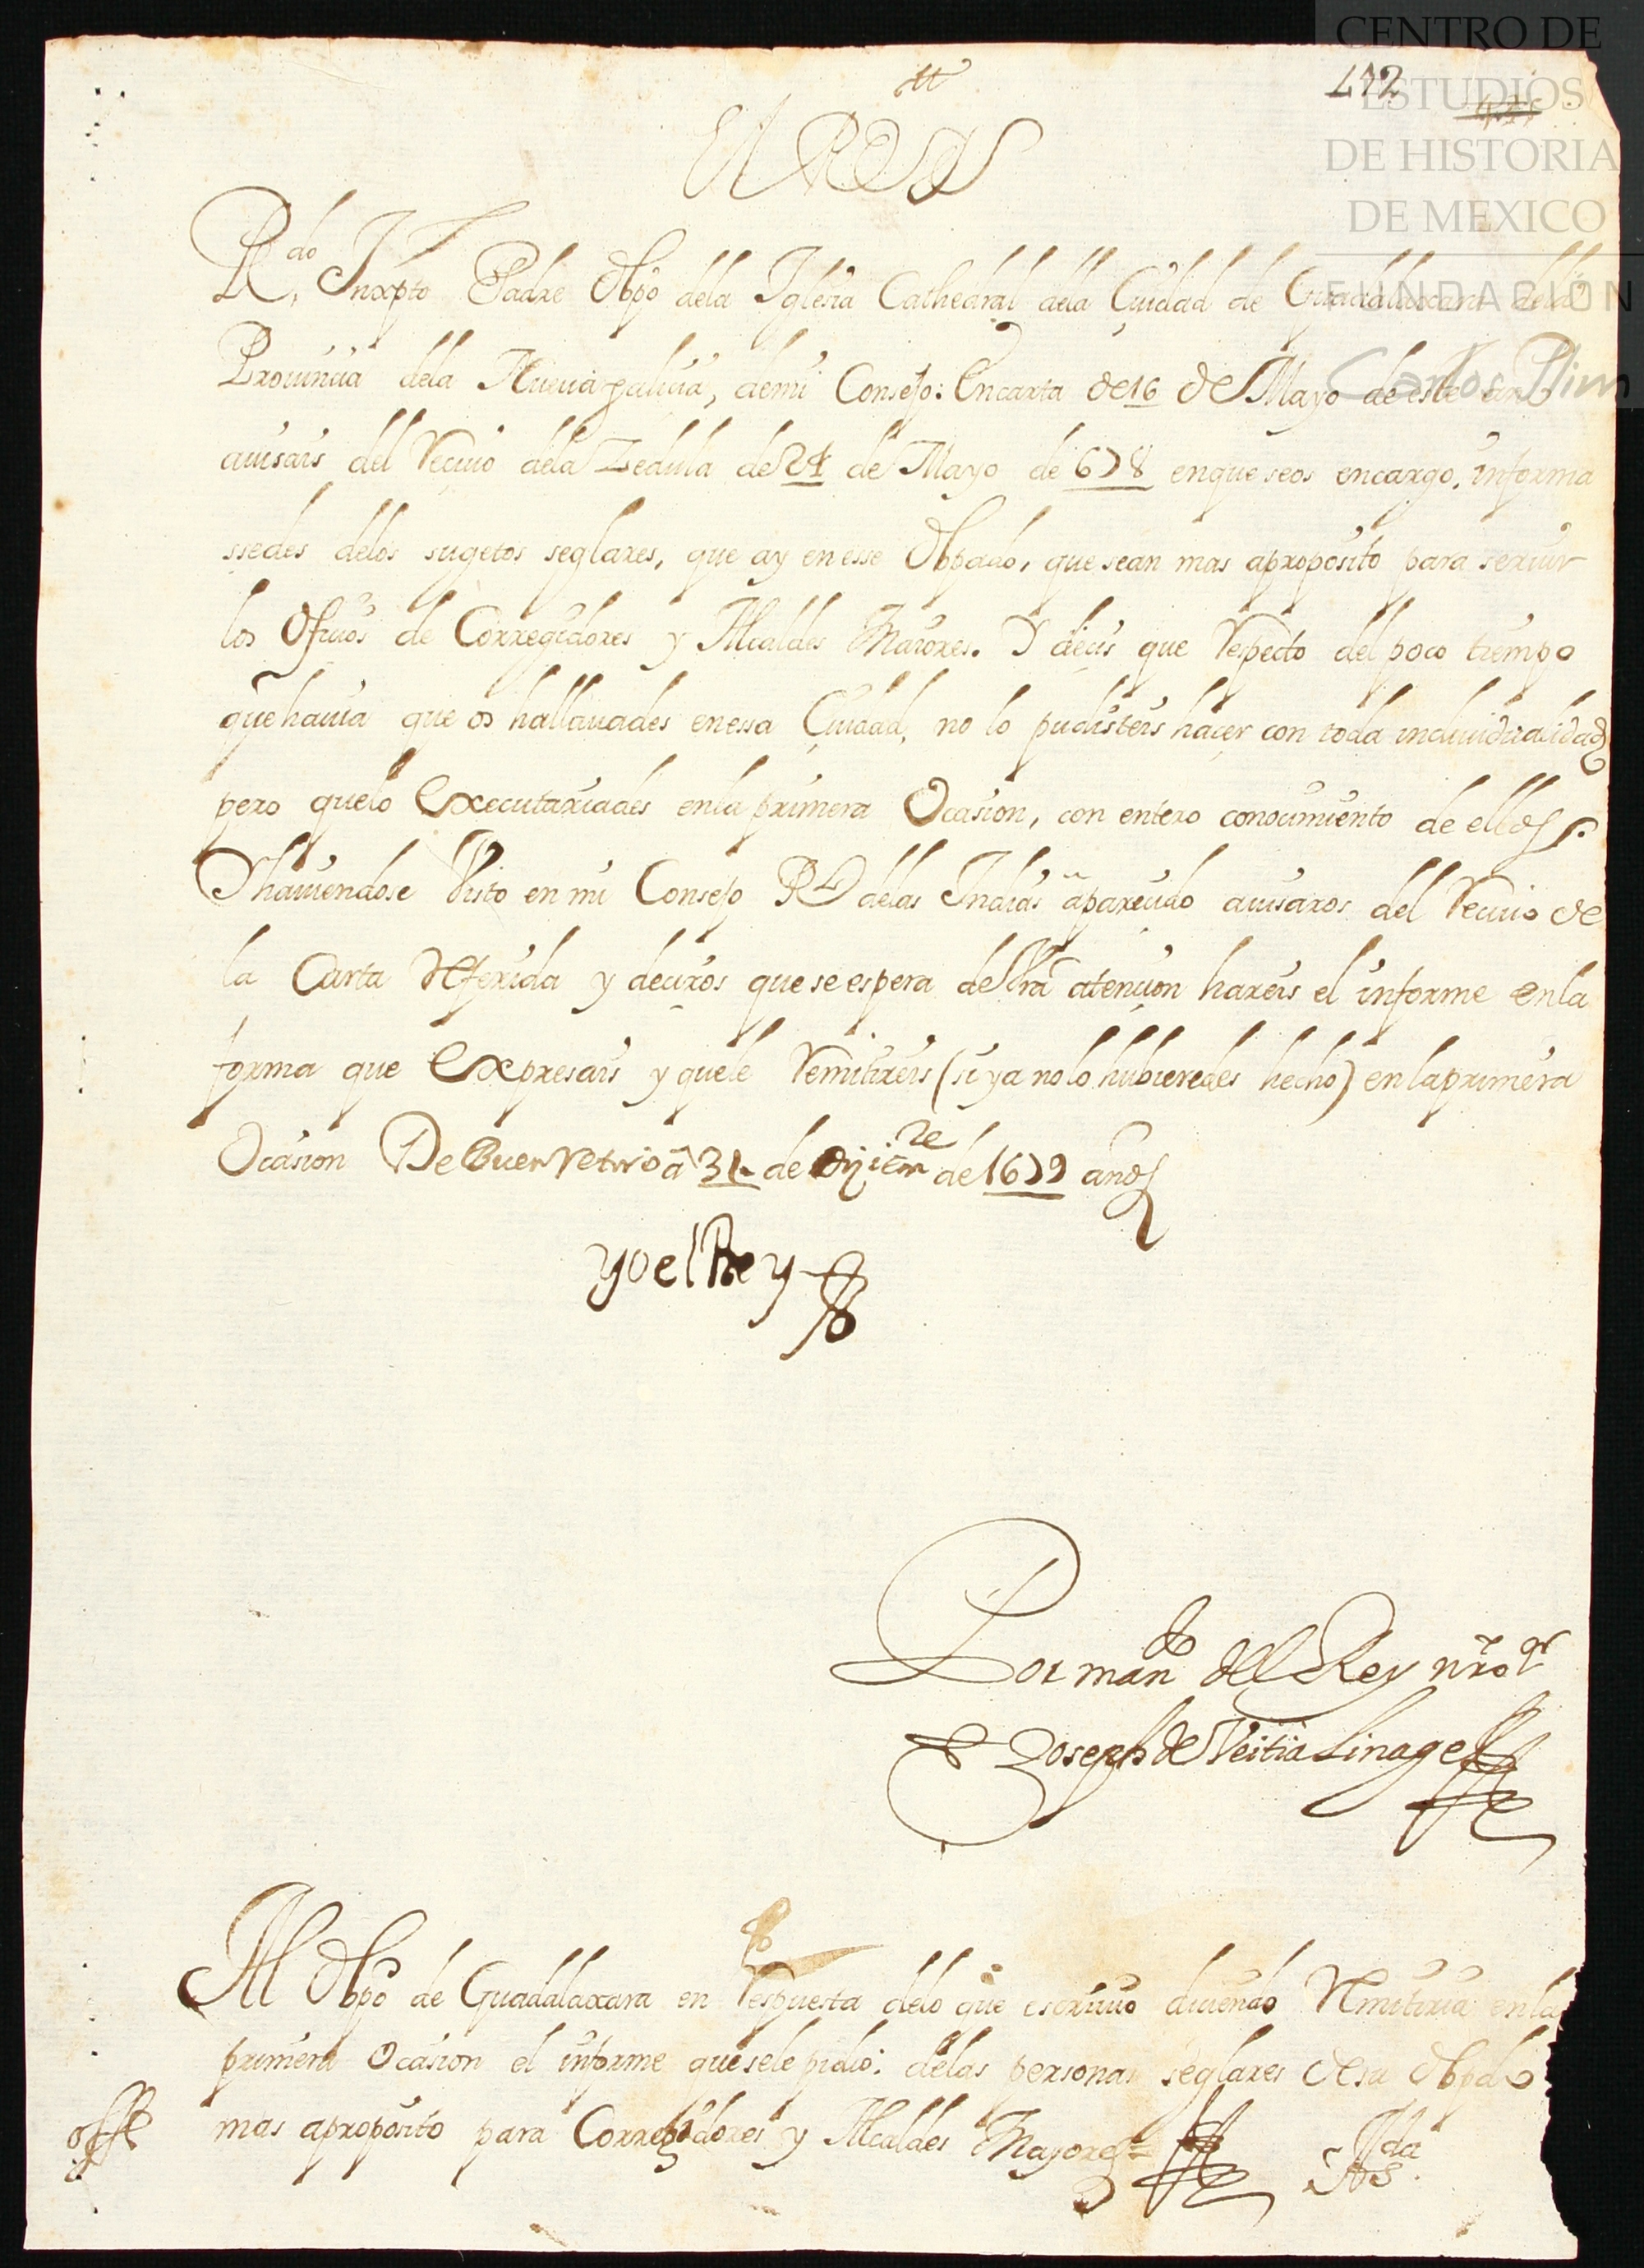 CENTRO DE
ESTUDIOS
DE HISTORIA
DE MEXICO
FUNDACIÓN
Carlos Slim
472
El Rey
Rdo Inxpto Padre Obpo dela Iglesia Cathedral dela Çiudad de Guadalaxara dela
Prouinçia dela Nueuagaliçia, demi Consejo: Encarta de 16 de Mayo de este año
auisais del Reciuo dela Zedula de 24 de Mayo de 678 enque seos encargo, informa
ssedes delos sugetos seglares, que ay en esse Obpado, que sean mas aproposito para seruir
los Ofiçios de Corregidores y Alcaldes Maiores. Y deçis que Respecto del poco tiempo
que hauia que os hallauades enessa Çiudad, no lo pudisteis haçer con toda indiuidualidad
pero quelo Executariades enla primera Ocasion, con entero conoçimiento de ellos.
Y hauiendose Visto en mi Consejo Rl delas Indias a pareçido auisaros del Reciuo de
la Carta Referida y deçiros que se espera de Vra atençion hareis el informe enla
forma que Expresais y quele Remitireis (si ya no lo hubieredes hecho) en la primera
Ocasion De Buen Retiro a 31 de Diziemre de 1679 años
yo el Rey
Por mando del Rey nro sr
Joseph de Veitia Linage
Al Obpo de Guadalaxara en Respuesta delo que escriuio diçiendo Remitiria enla
primera Ocasion el informe que sele pidio: delas personas seglares de su Obpado
mas aproposito para Corregidores y Alcaldes Mayores